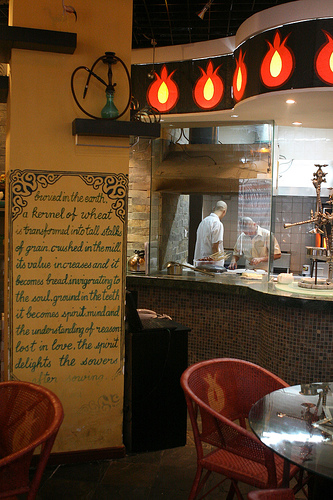 buried in the earth,
a kernel of wheat
is transformed into tall stalks
of grain. crushed in the mill
its value increases and it
becomes bread, invigorating to
the soul. ground in the teeth
it becomes spirit, mind and
the understanding of reason
lost in love, the spirit
delights the sowers
after sowing